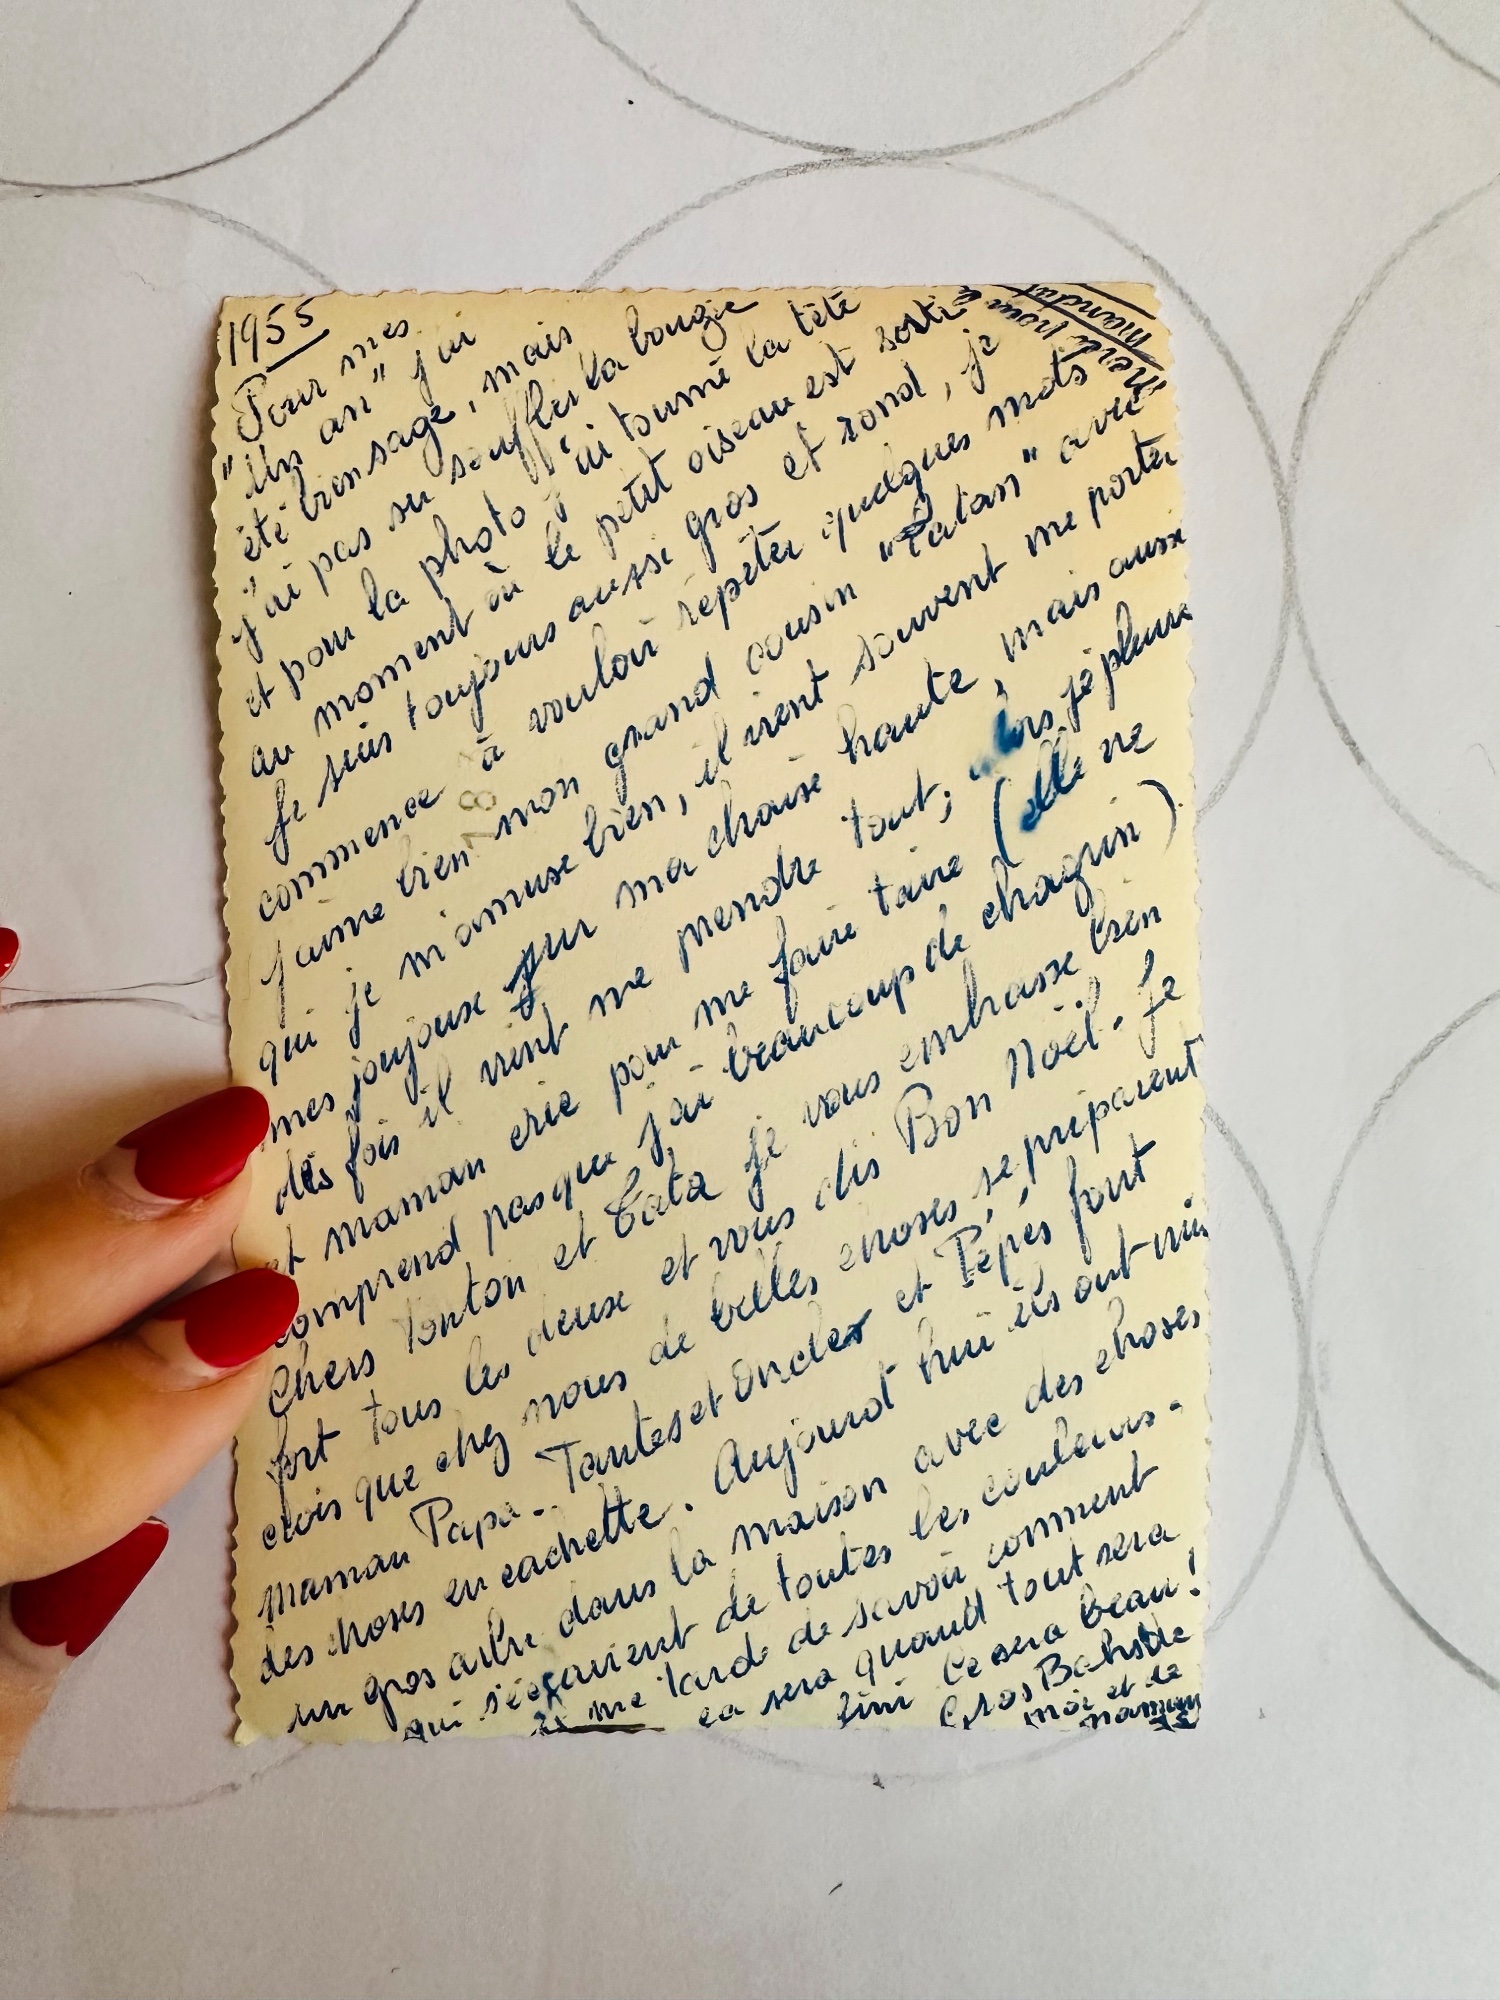 1955
Pour mes
"un an" j'ai
été bien sage, mais
j'ai pas su souffler la bougie
et pour la photo j'ai tourné la tête
au moment où le petit oiseau est sorti
Je suis toujours aussi gros et rond, je
commence à vouloir répéter quelques mots
j'aime bien mon grand cousin "Tatan" avec
qui je m'amuse bien, il vient souvent me porter
mes joujoux sur ma chaise haute, mais aussi
des fois il vient me prendre tout, alors je pleure
et maman crie pour me faire taire (elle ne
comprend pas que j'ai beaucoup de chagrin)
Chers tonton et Tata je vous embrasse bien
fort tous les deux et vous dis Bon Noël. Je
crois que chez nous de belles choses se préparent
Maman Papa - Tantes et Oncles et Pépés font
des choses en cachette. Aujourd'hui ils ont mis
un gros arbre dans la maison avec des choses
qui s'éclairent de toutes les couleurs.
me tarde de savoir comment
ca sera quand tout sera
fini Ce sera beau!
Gros
moi et de
maman
Merci pour
mandat